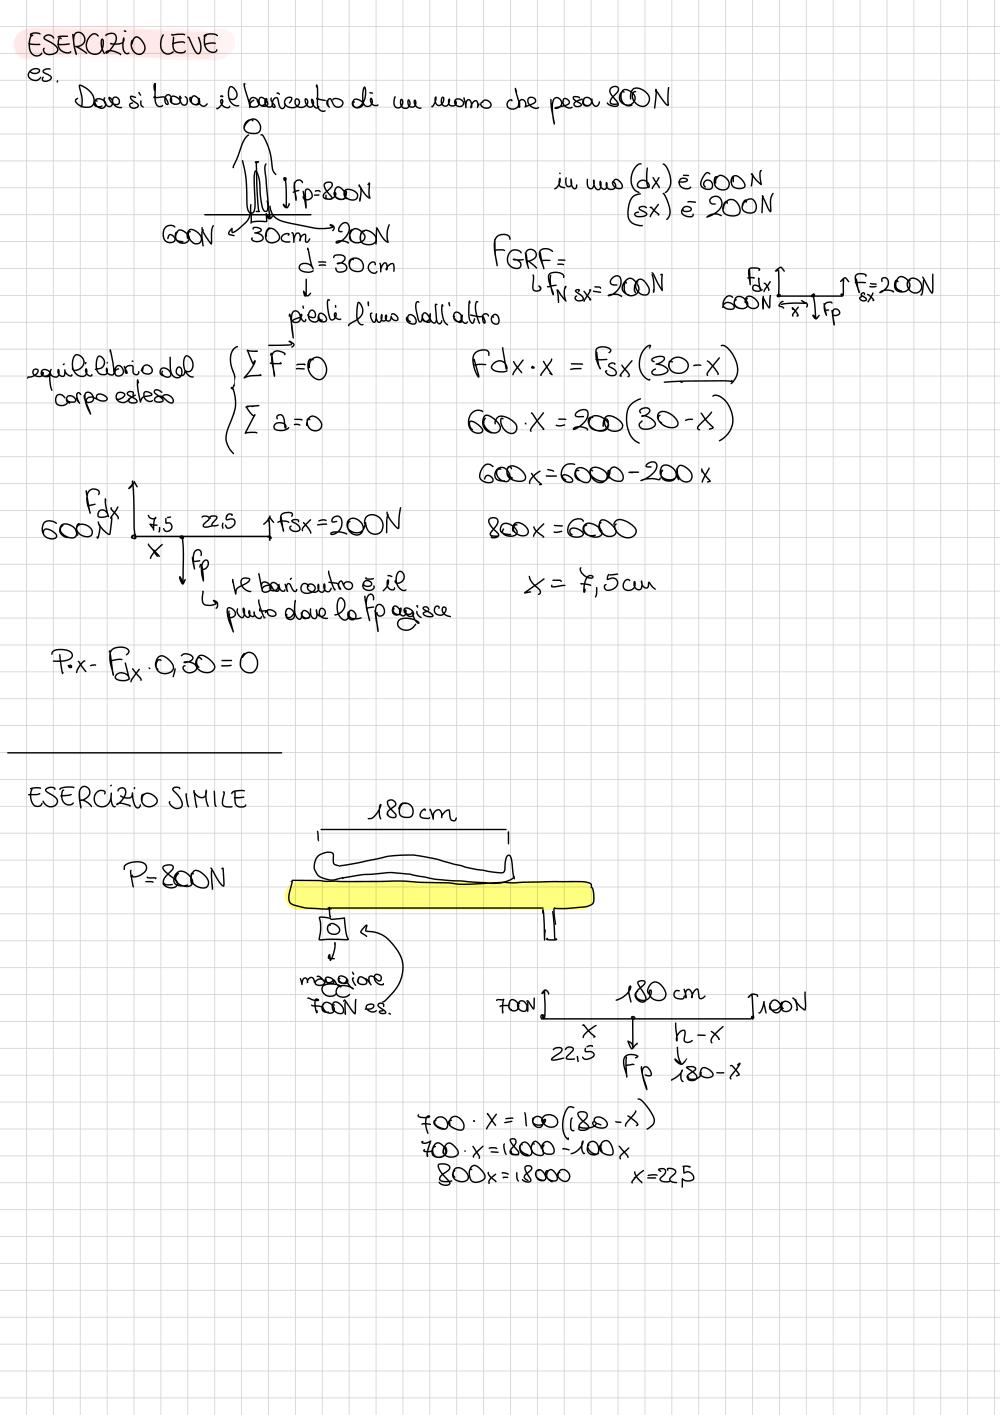 ESERCIZIO LEVE
es.
Dove si trova il baricentro di un uomo che pesa 800N
Fp=800N
600N 30cm 200N
d=30cm
piedi l'uno dall'altro
in uno (dx) è 600N
(sx) è 200N
FGRF=
FN sx=200N
Fdx
600N x Fp
Fsx=200N
equilibrio del
corpo esteso
ΣF=0
Σa=0
Fdx·x = Fsx(30-x)
600·x=200(30-x)
600x=6000-200x
800x=6000
x=7,5cm
Fdx
600N
7,5 22,5
fsx=200N
x Fp
il baricentro è il
punto dove la Fp agisce
P·x-Fdx·0,30=0
ESERCIZIO SIMILE
180cm
P=800N
maggiore
700N es.
700N 180cm 100N
x h-x
22,5
Fp 180-x
700·x=100(180-x)
700·x=18000-100x
800x=18000 x=22,5